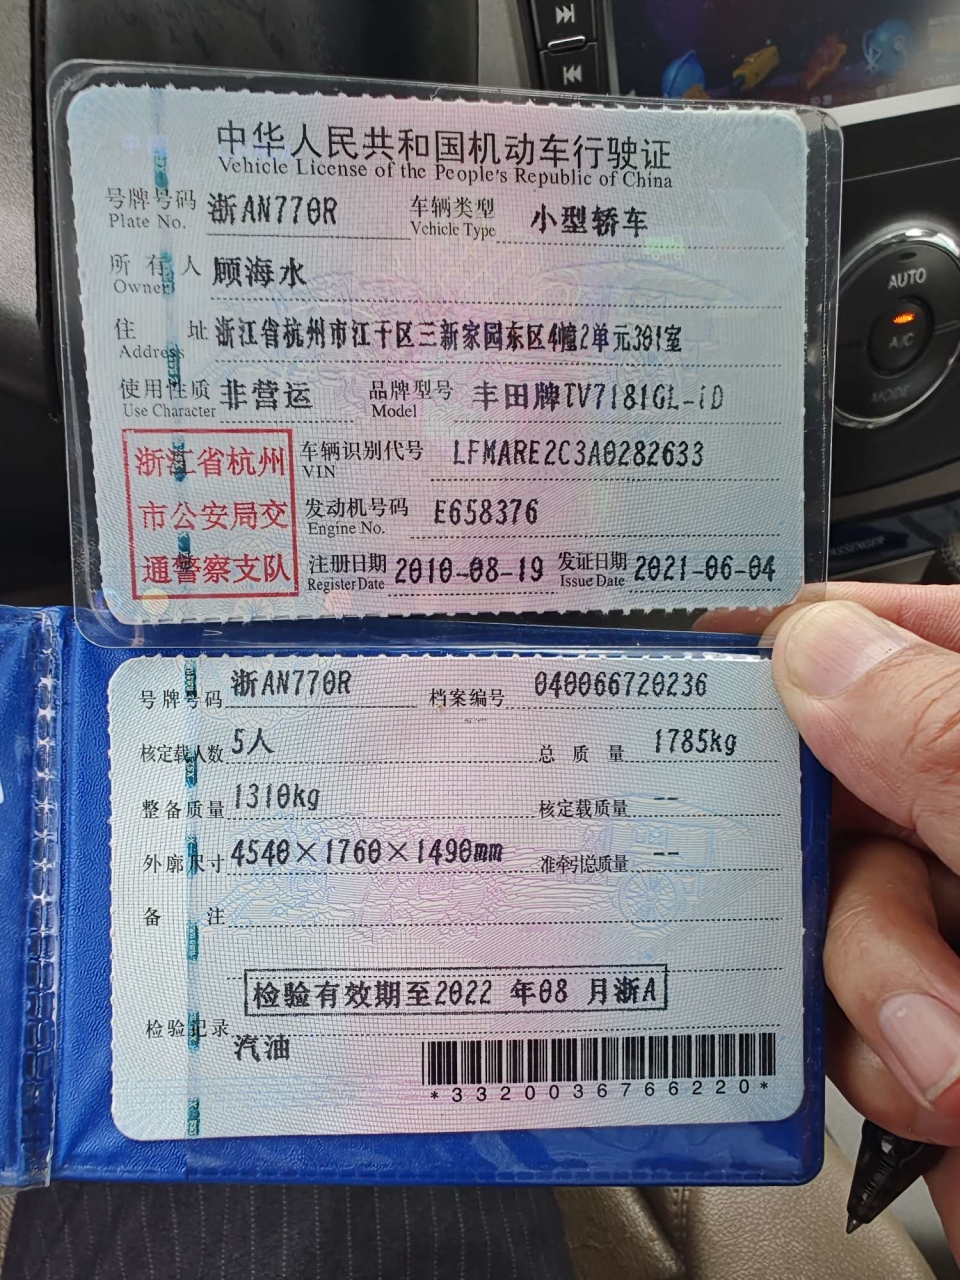 AUTO
A/C
MODE
PASSENGER
中华人民共和国机动车行驶证
Vehicle License of the People's Republic of China
号牌号码 浙AN770R 车辆类型 小型轿车
Plate No. Vehicle Type
所有人 顾海水
Owner
住址 浙江省杭州市江干区三新家园东区4幢2单元301室
Address
使用性质 非营运 品牌型号 丰田牌TV7181GL-iD
Use Character Model
浙江省杭州
市公安局交
通警察支队
车辆识别代号 LFMARE2C3A0282633
VIN
发动机号码 E658376
Engine No.
注册日期 2010-08-19 发证日期 2021-06-04
Register Date Issue Date
号牌号码 浙AN770R 档案编号 040066720236
核定载人数 5人 总质量 1785kg
整备质量 1310kg 核定载质量 --
外廓尺寸 4540×1760×1490mm 准牵引总质量 --
备注
检验有效期至2022年08月浙A
检验记录
汽油
*3320036766220*